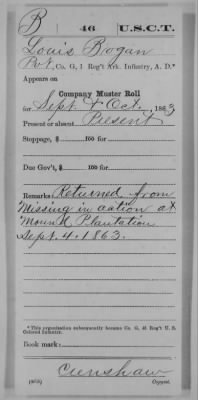 B 46 U.S.C.T.
Louis Bogan
Pvt, Co. G, 1 Reg't Ark. Infantry, A. D.*
Appears on
Company Muster Roll
for Sept & Oct, 1863
Present or absent Present
Stoppage, $ 100 for
Due Gov't, $ 100 for
Remarks: Returned from
Missing in action at
Mound Plantation
Sept. 4. 1863.
*This organization subsequently became Co. G, 46 Reg't U. S.
Colored Infantry.
Book mark:
Crenshaw
Copyist.